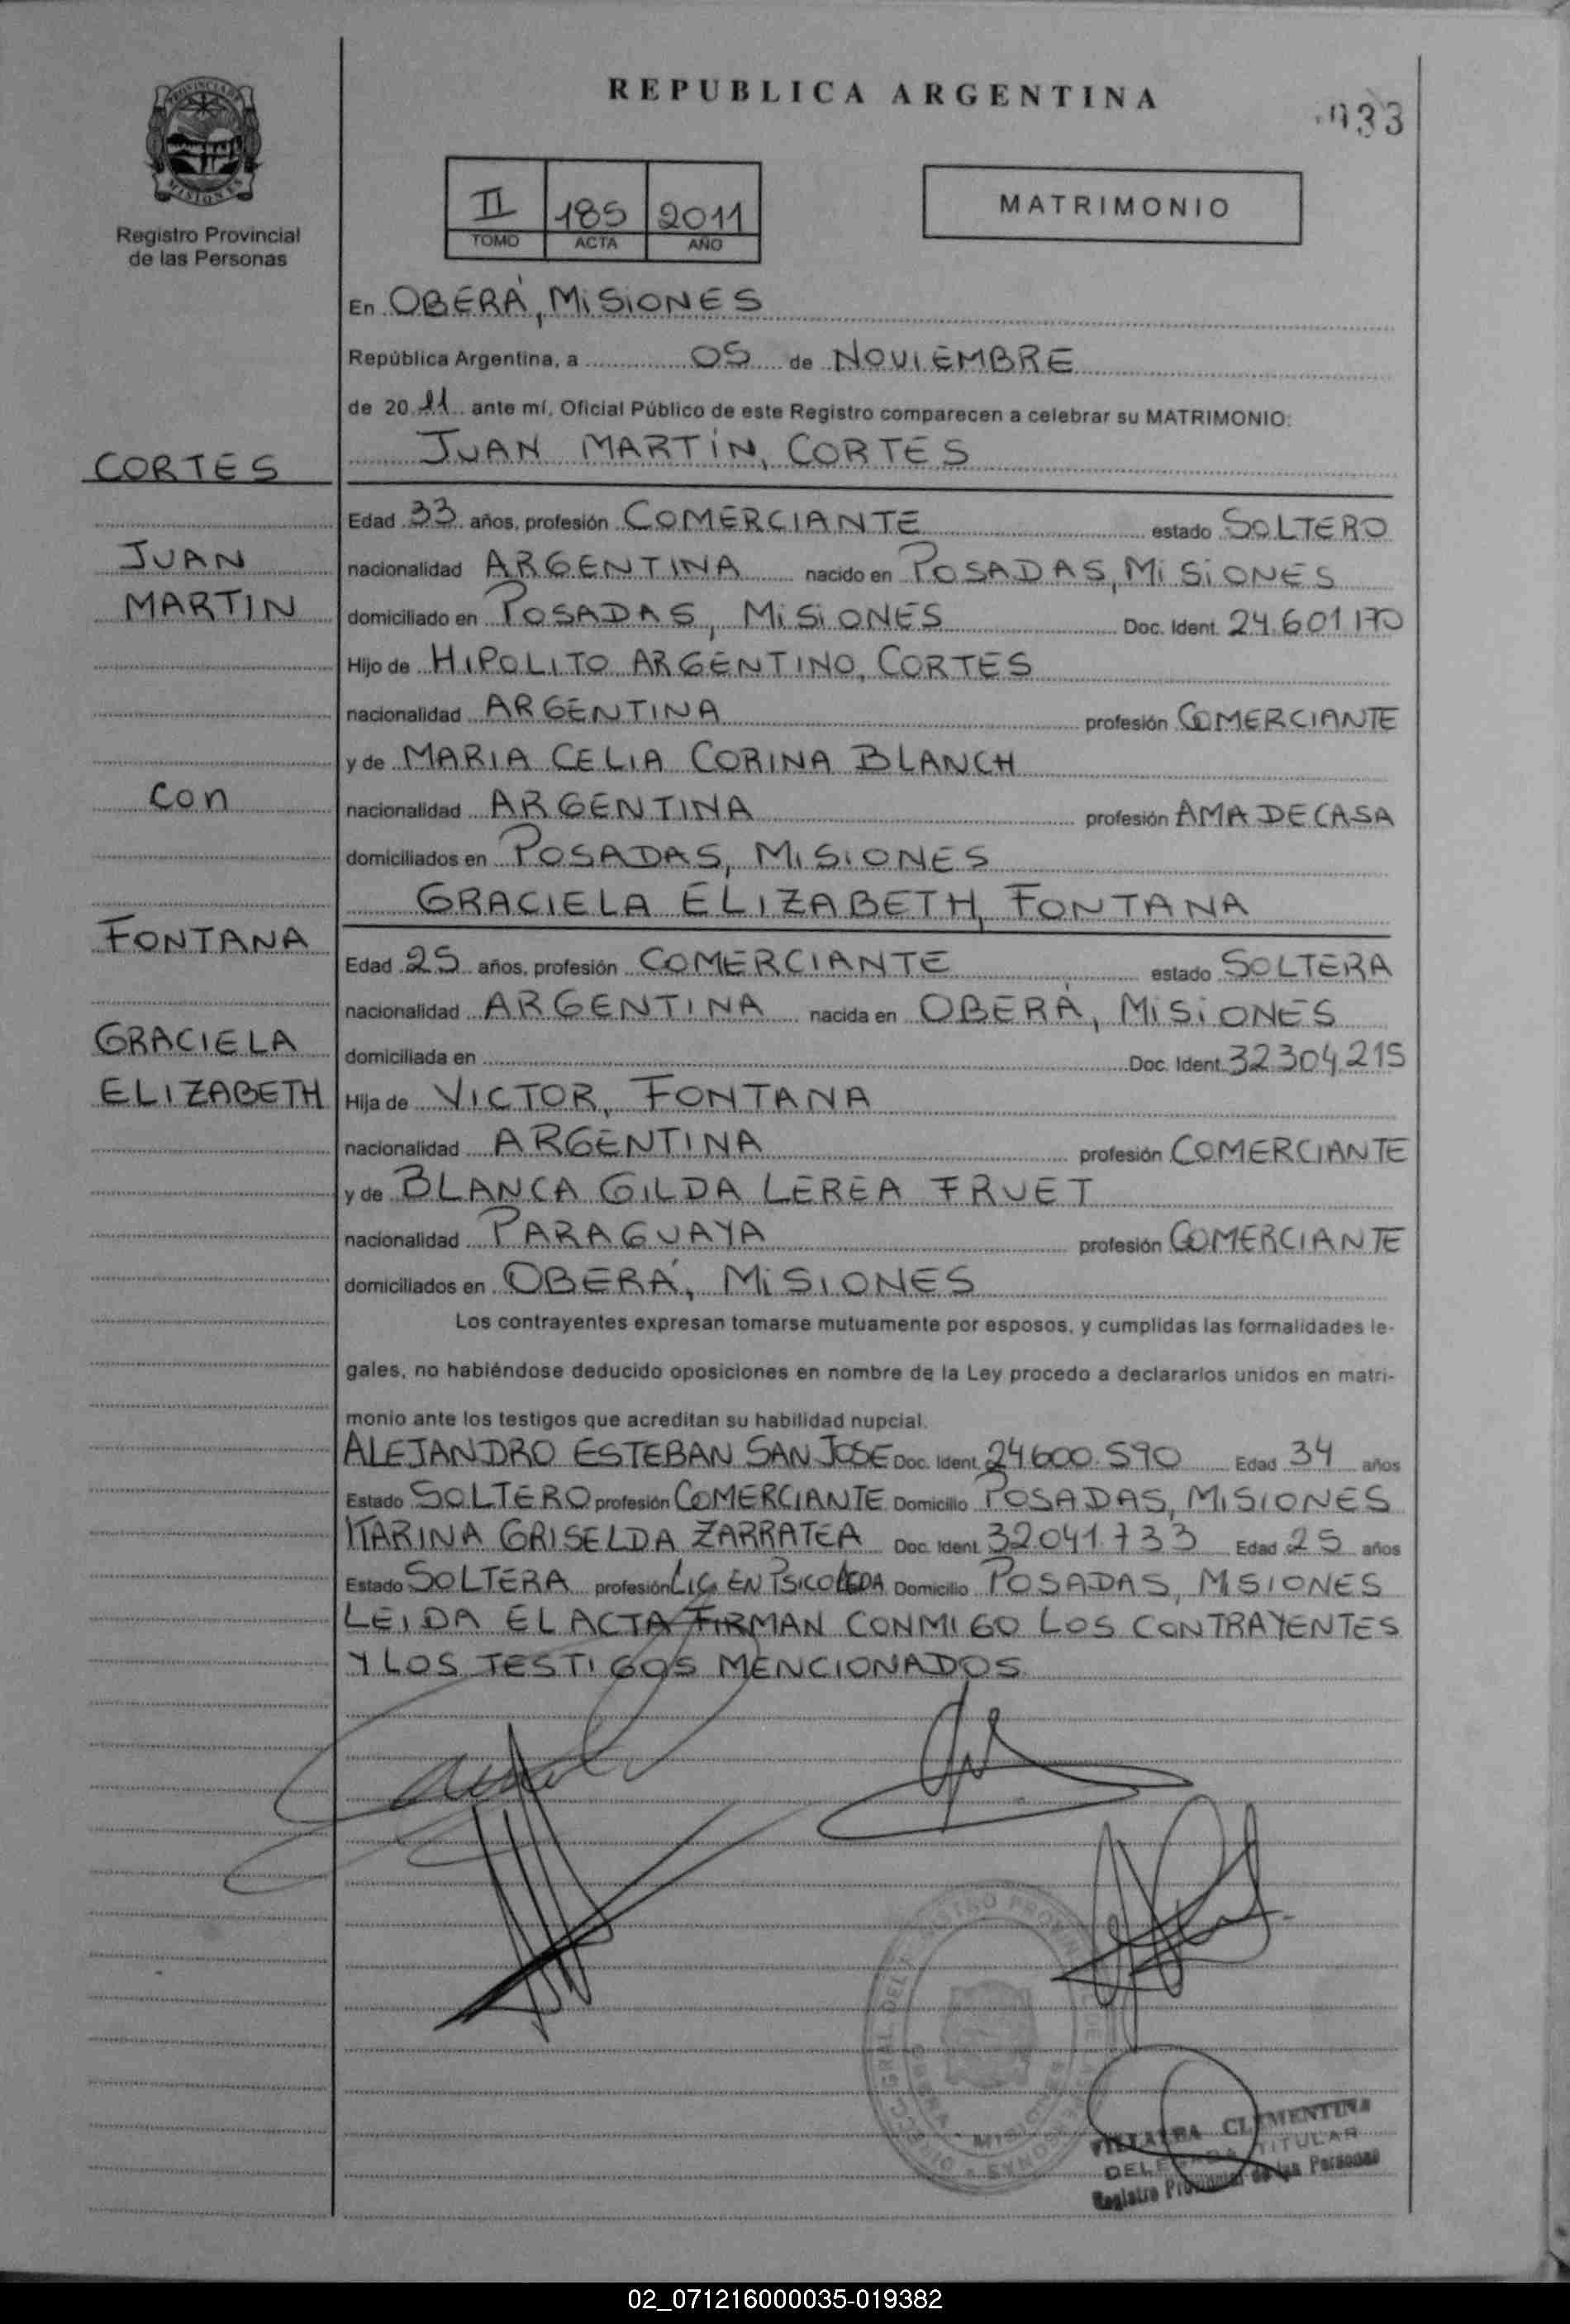 REPUBLICA ARGENTINA
933
PROVINCIA DE
MISIONES
Registro Provincial
de las Personas
II 185 2011
TOMO ACTA AÑO
MATRIMONIO
En OBERÁ, MISIONES
República Argentina, a 05 de NOVIEMBRE
de 2011 ante mí, Oficial Público de este Registro comparecen a celebrar su MATRIMONIO:
JUAN MARTÍN, CORTES
CORTES
Edad 33 años, profesión COMERCIANTE estado SOLTERO
JUAN
nacionalidad ARGENTINA nacido en POSADAS, MISIONES
MARTIN
domiciliado en POSADAS, MISIONES Doc. Ident. 24.601.170
Hijo de HIPOLITO ARGENTINO, CORTES
nacionalidad ARGENTINA profesión COMERCIANTE
y de MARIA CELIA CORINA BLANCH
con
nacionalidad ARGENTINA profesión AMA DE CASA
domiciliados en POSADAS, MISIONES
GRACIELA ELIZABETH, FONTANA
FONTANA
Edad 25 años, profesión COMERCIANTE estado SOLTERA
nacionalidad ARGENTINA nacida en OBERÁ, MISIONES
GRACIELA
domiciliada en Doc. Ident. 32.304.215
ELIZABETH
Hija de VICTOR, FONTANA
nacionalidad ARGENTINA profesión COMERCIANTE
y de BLANCA GILDA LEREA FRUET
nacionalidad PARAGUAYA profesión COMERCIANTE
domiciliados en OBERÁ, MISIONES
Los contrayentes expresan tomarse mutuamente por esposos, y cumplidas las formalidades le-
gales, no habiéndose deducido oposiciones en nombre de la Ley procedo a declararlos unidos en matri-
monio ante los testigos que acreditan su habilidad nupcial.
ALEJANDRO ESTEBAN SAN JOSE Doc. Ident. 24600.590 Edad 34 años
Estado SOLTERO profesión COMERCIANTE Domicilio POSADAS, MISIONES
KARINA GRISELDA ZARRATEA Doc. Ident. 32.041.733 Edad 25 años
Estado SOLTERA profesión LIC. EN Domicilio POSADAS, MSIONES
LEIDA EL ACTA FIRMAN CONMIGO LOS CONTRAYENTES
Y LOS TESTIGOS MENCIONADOS
VILLALBA CLEMENTINA
DELEGADA TITULAR
Registro Provincial de las Personas
02_071216000035-019382